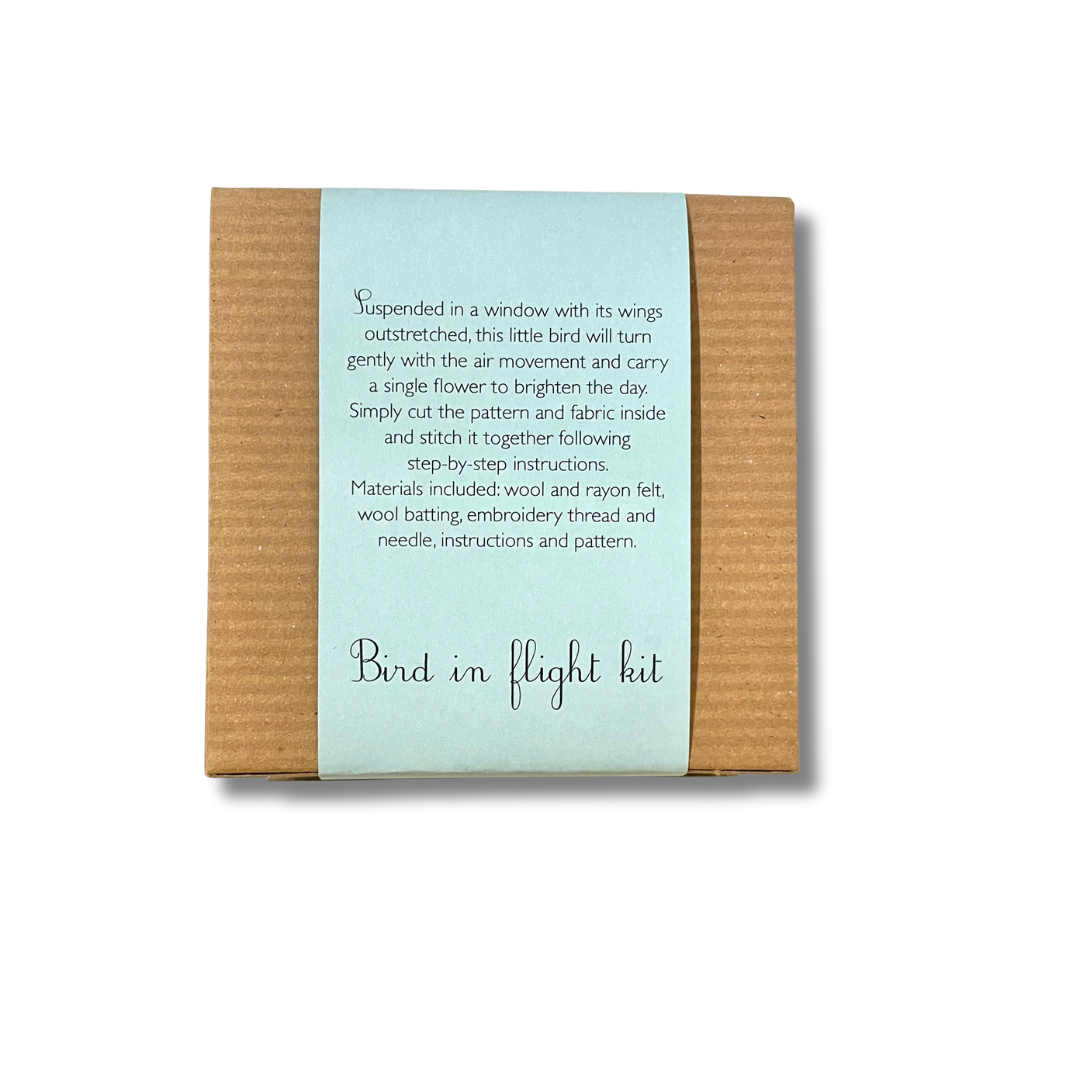 Suspended in a window with its wings
outstretched, this little bird will turn
gently with the air movement and carry
a single flower to brighten the day.
Simply cut the pattern and fabric inside
and stitch it together following
step-by-step instructions.
Materials included: wool and rayon felt,
wool batting, embroidery thread and
needle, instructions and pattern.
Bird in flight kit